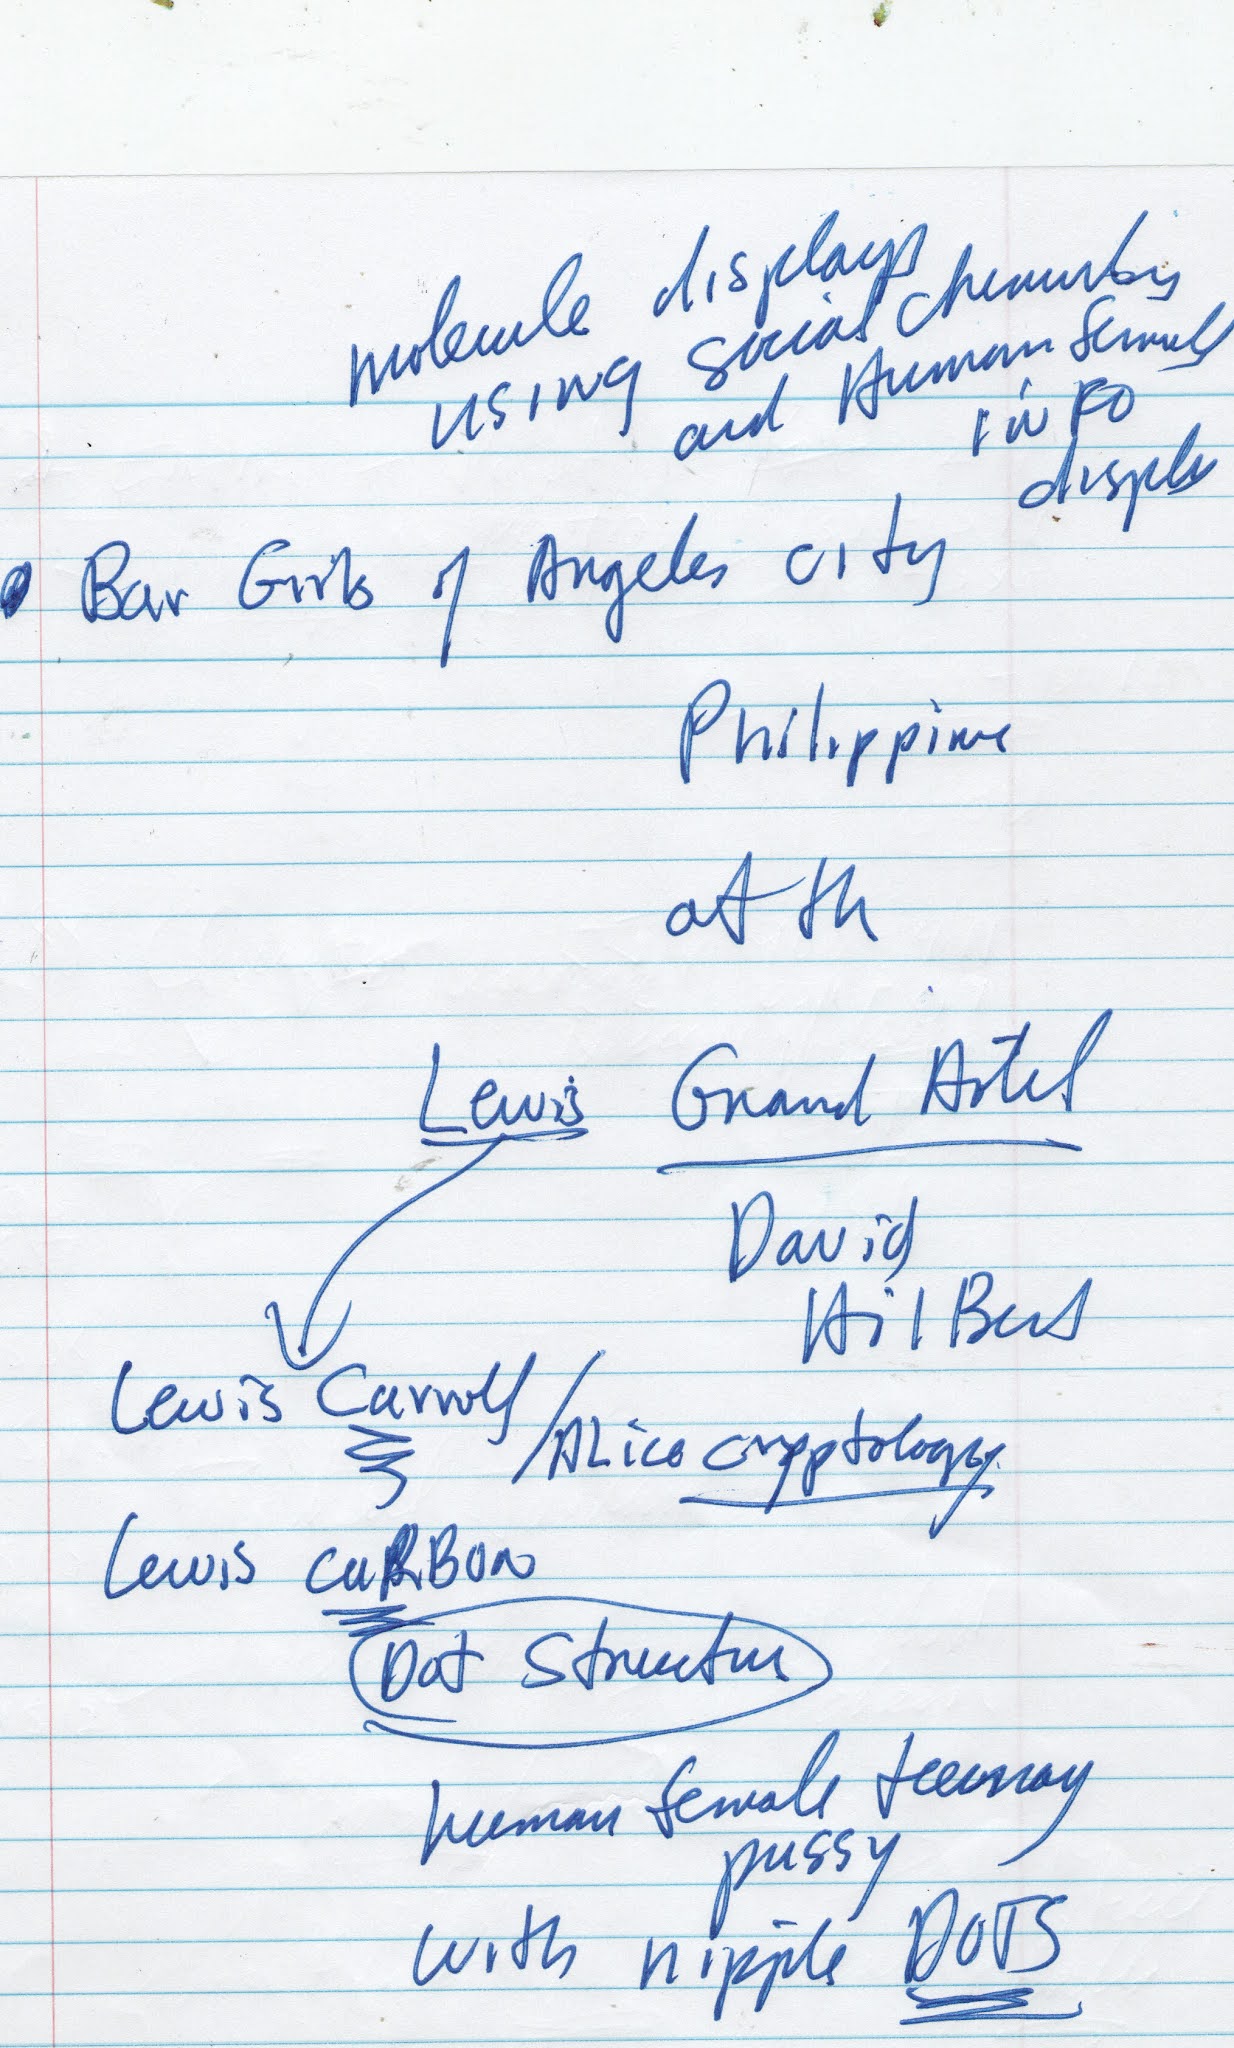 molecule displays
using social chemistry
and Human female
info
display
Bar Girls of Angeles City
Philippine
at th
Lewis Grand Hotel
David
HilBert
Lewis Carroll / ALice cryptology
Lewis caRBon
Dot Structure
human female
pussy
with nipple DOTS